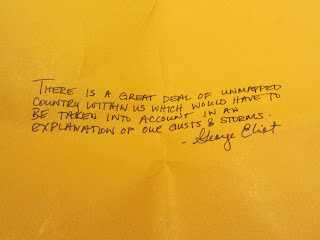 THERE IS A GREAT DEAL OF UNMAPPED
COUNTRY WITHIN US WHICH WOULD HAVE TO
BE TAKEN INTO ACCOUNT IN AN
EXPLANATION OF OUR GUSTS & STORMS.
- George Eliot